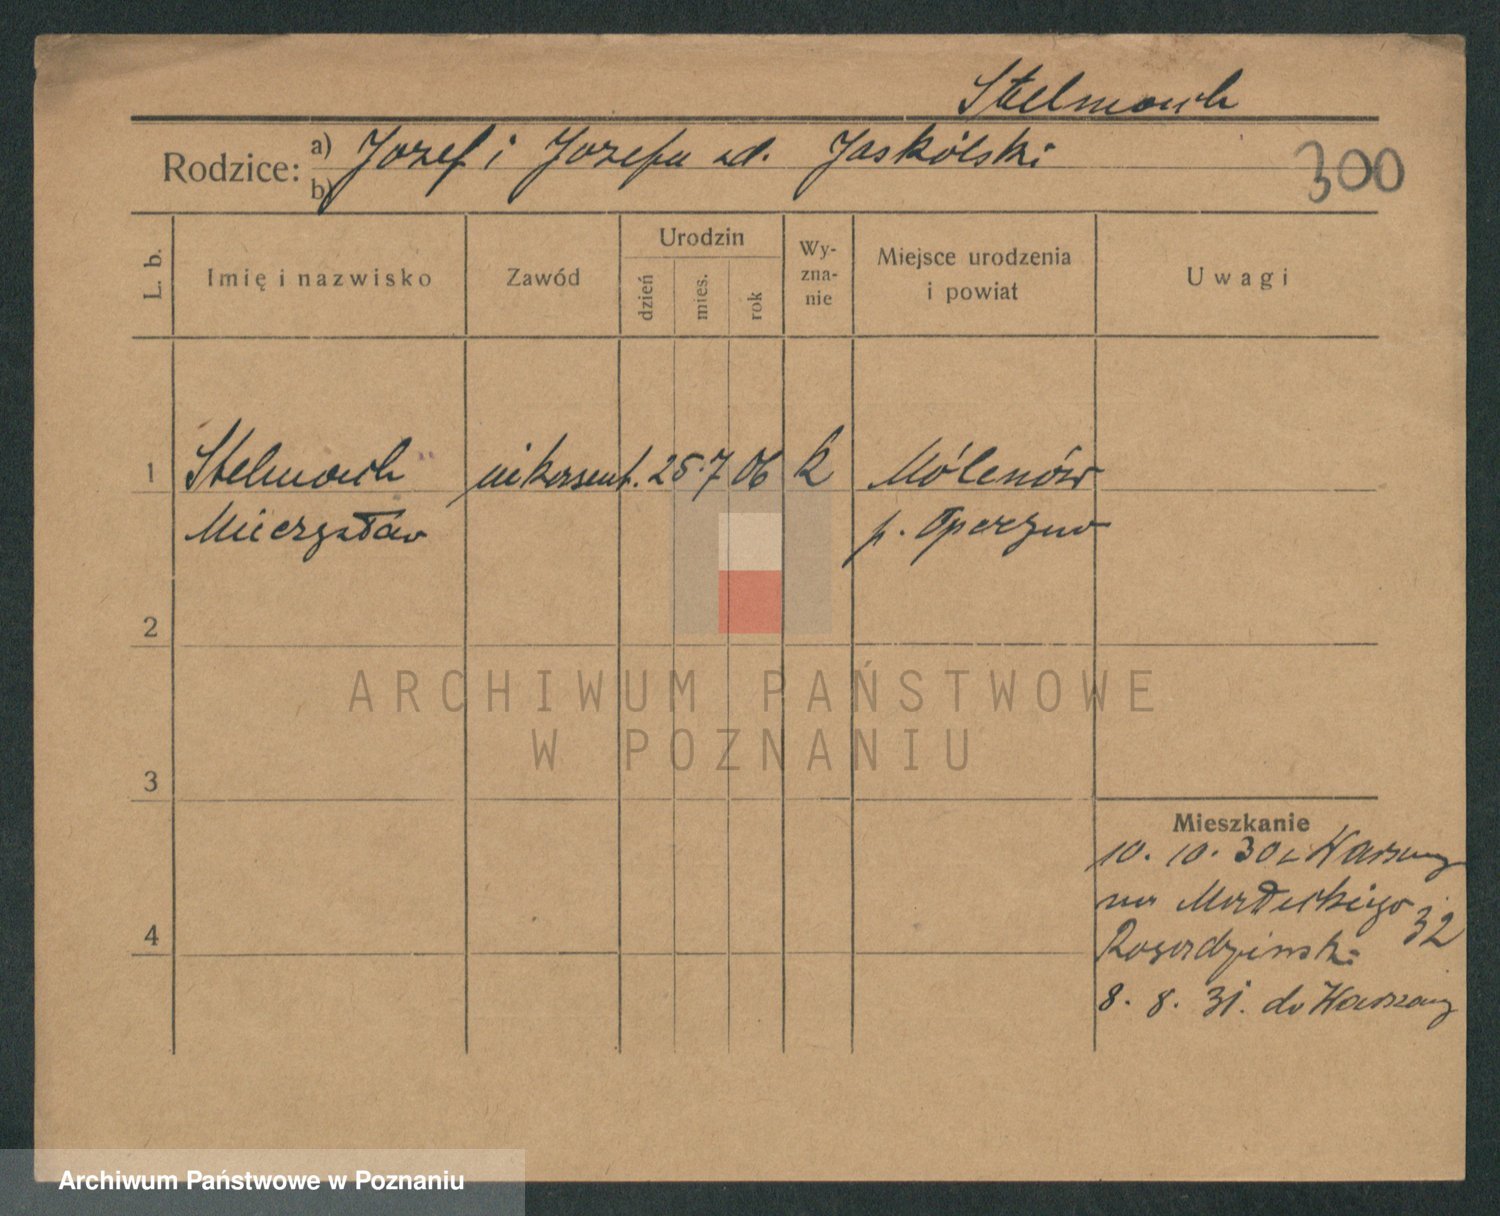 Stelmach
Rodzice: a) Józef i Józefa zd. Jaskólski
b)
300
L. b.
Imię i nazwisko
Zawód
Urodzin
dzień
mies.
rok
Wy-
zna-
nie
Miejsce urodzenia
i powiat
Uwagi
1 Stelmach 25. 7 06 k
Mieczysław p.
2
ARCHIWUM PAŃSTWOWE
W POZNANIU
3
Mieszkanie
10. 10. 30 z Warszawy
32
4
8. 8. 31. do Warszawy
Archiwum Państwowe w Poznaniu